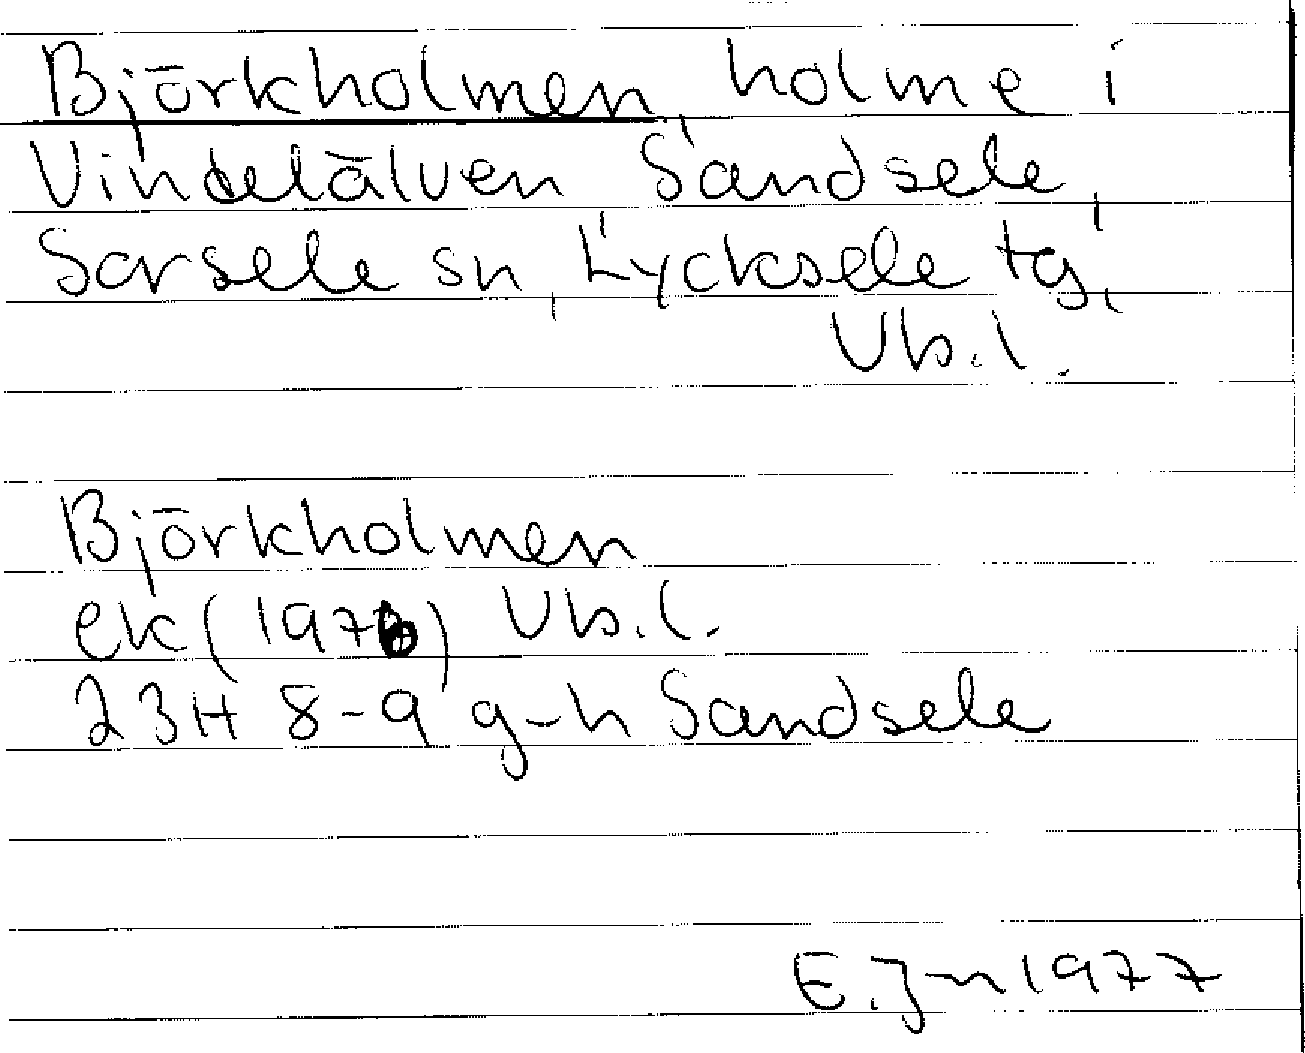 Björkholmen, holme i
Vindelälven, Sandsele,
Sorsele sn, Lycksele tg,
Vb.l.
Björkholmen
ek (1976) Vb.l.
23H 8-9 g-h Sandsele
E.J-n 1977